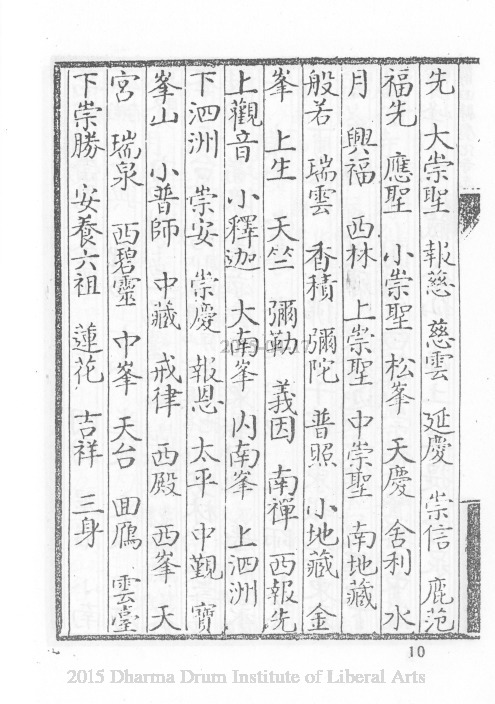 先 大崇聖 報慈 慈雲 延慶 崇信 鹿苑
福先 應聖 小崇聖 松峯 天慶 舍利 水
月 興福 西林 上崇聖 中崇聖 南地藏
般若 瑞雲 香積 彌陀 普照 小地藏 金
峯 上生 天竺 彌勒 義因 南禪 西報先
上觀音 小釋迦 大南峯 內南峯 上泗洲
下泗洲 崇安 崇慶 報恩 太平 中觀 寶
峯山 小普師 中藏 戒律 西殿 西峯 天
宮 瑞泉 西碧靈 中峯 天台 回鴈 雲臺
下崇勝 安養六祖 蓮花 吉祥 三身
10
2015 Dharma Drum Institute of Liberal Arts